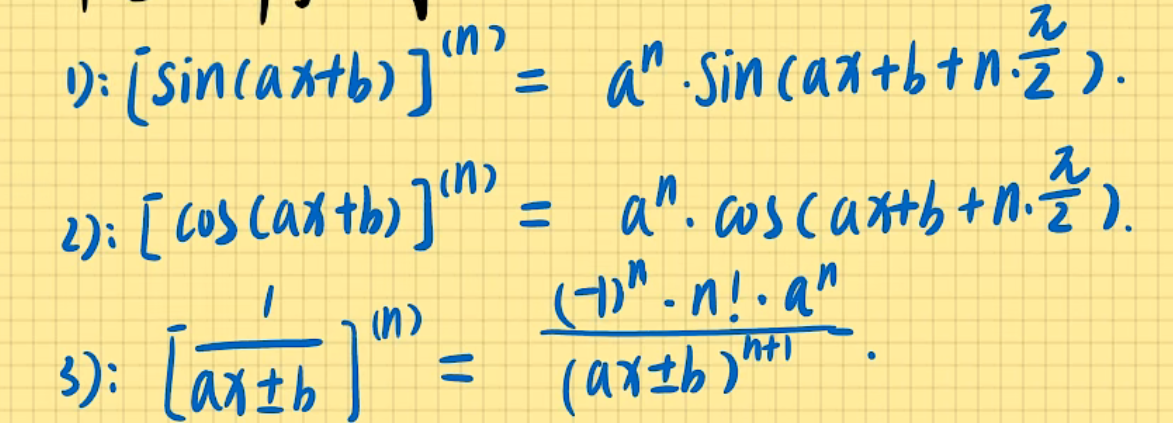 1): [sin(ax+b)]^(n) = a^n · sin(ax+b+n·π/2).
2): [cos(ax+b)]^(n) = a^n · cos(ax+b+n·π/2).
3): [1/(ax±b)]^(n) = ((-1)^n · n! · a^n)/(ax±b)^(n+1).